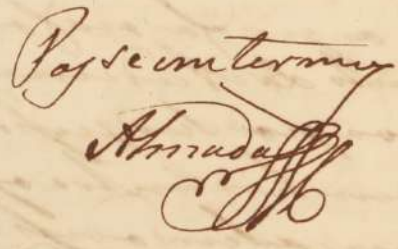 Passe em termos
Almada